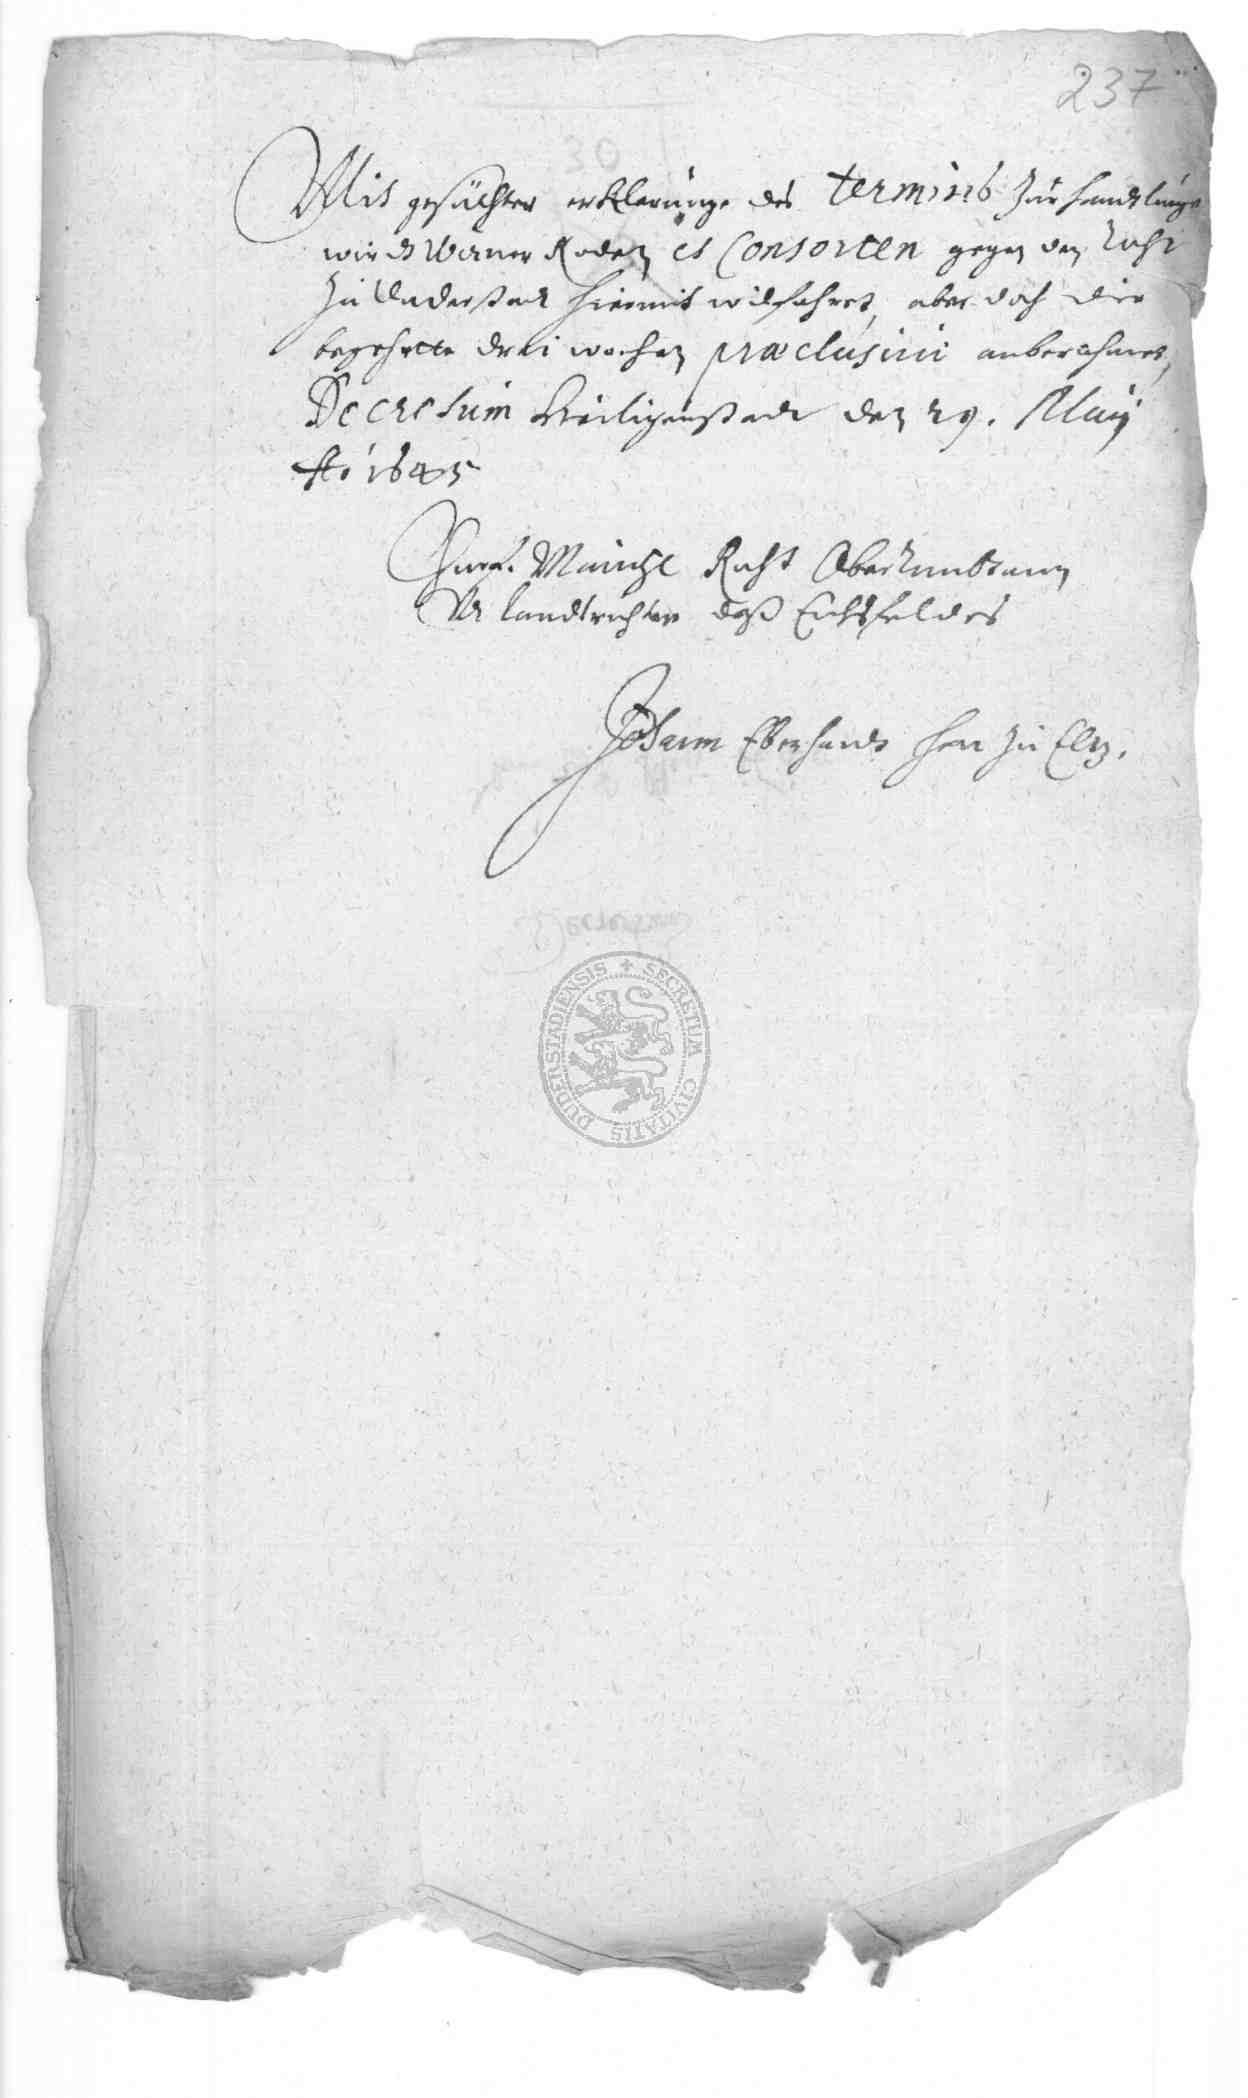 237
30
Mit gesuchter erklerunge des termini zur handlunge
wirdt Werner Roden et Consorten gegen den Raht
zu Duderstadt hiermit wilfahret, aber doch die
begehrtte drei wochen præclusivi anberahmet,
Decretum Heiligenstadt den 29. Maij
Ao 1645
Churf. Maintz. Raht Oberambtman
Landtrichter deß Eichsfeldes
Johann Eberhardt Herr zu Eltz.
SECRETUM CIVITATIS DUDERSTADIENSIS